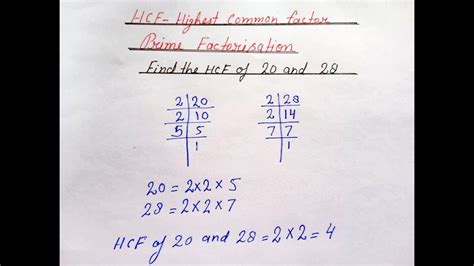 HCF - Highest Common factor
Prime Factorisation
Find the HCF of 20 and 28
2 | 20    2 | 28
2 | 10    2 | 14
5 | 5    7 | 7
| 1    | 1
20 = 2×2×5
28 = 2×2×7
HCF of 20 and 28 = 2×2 = 4